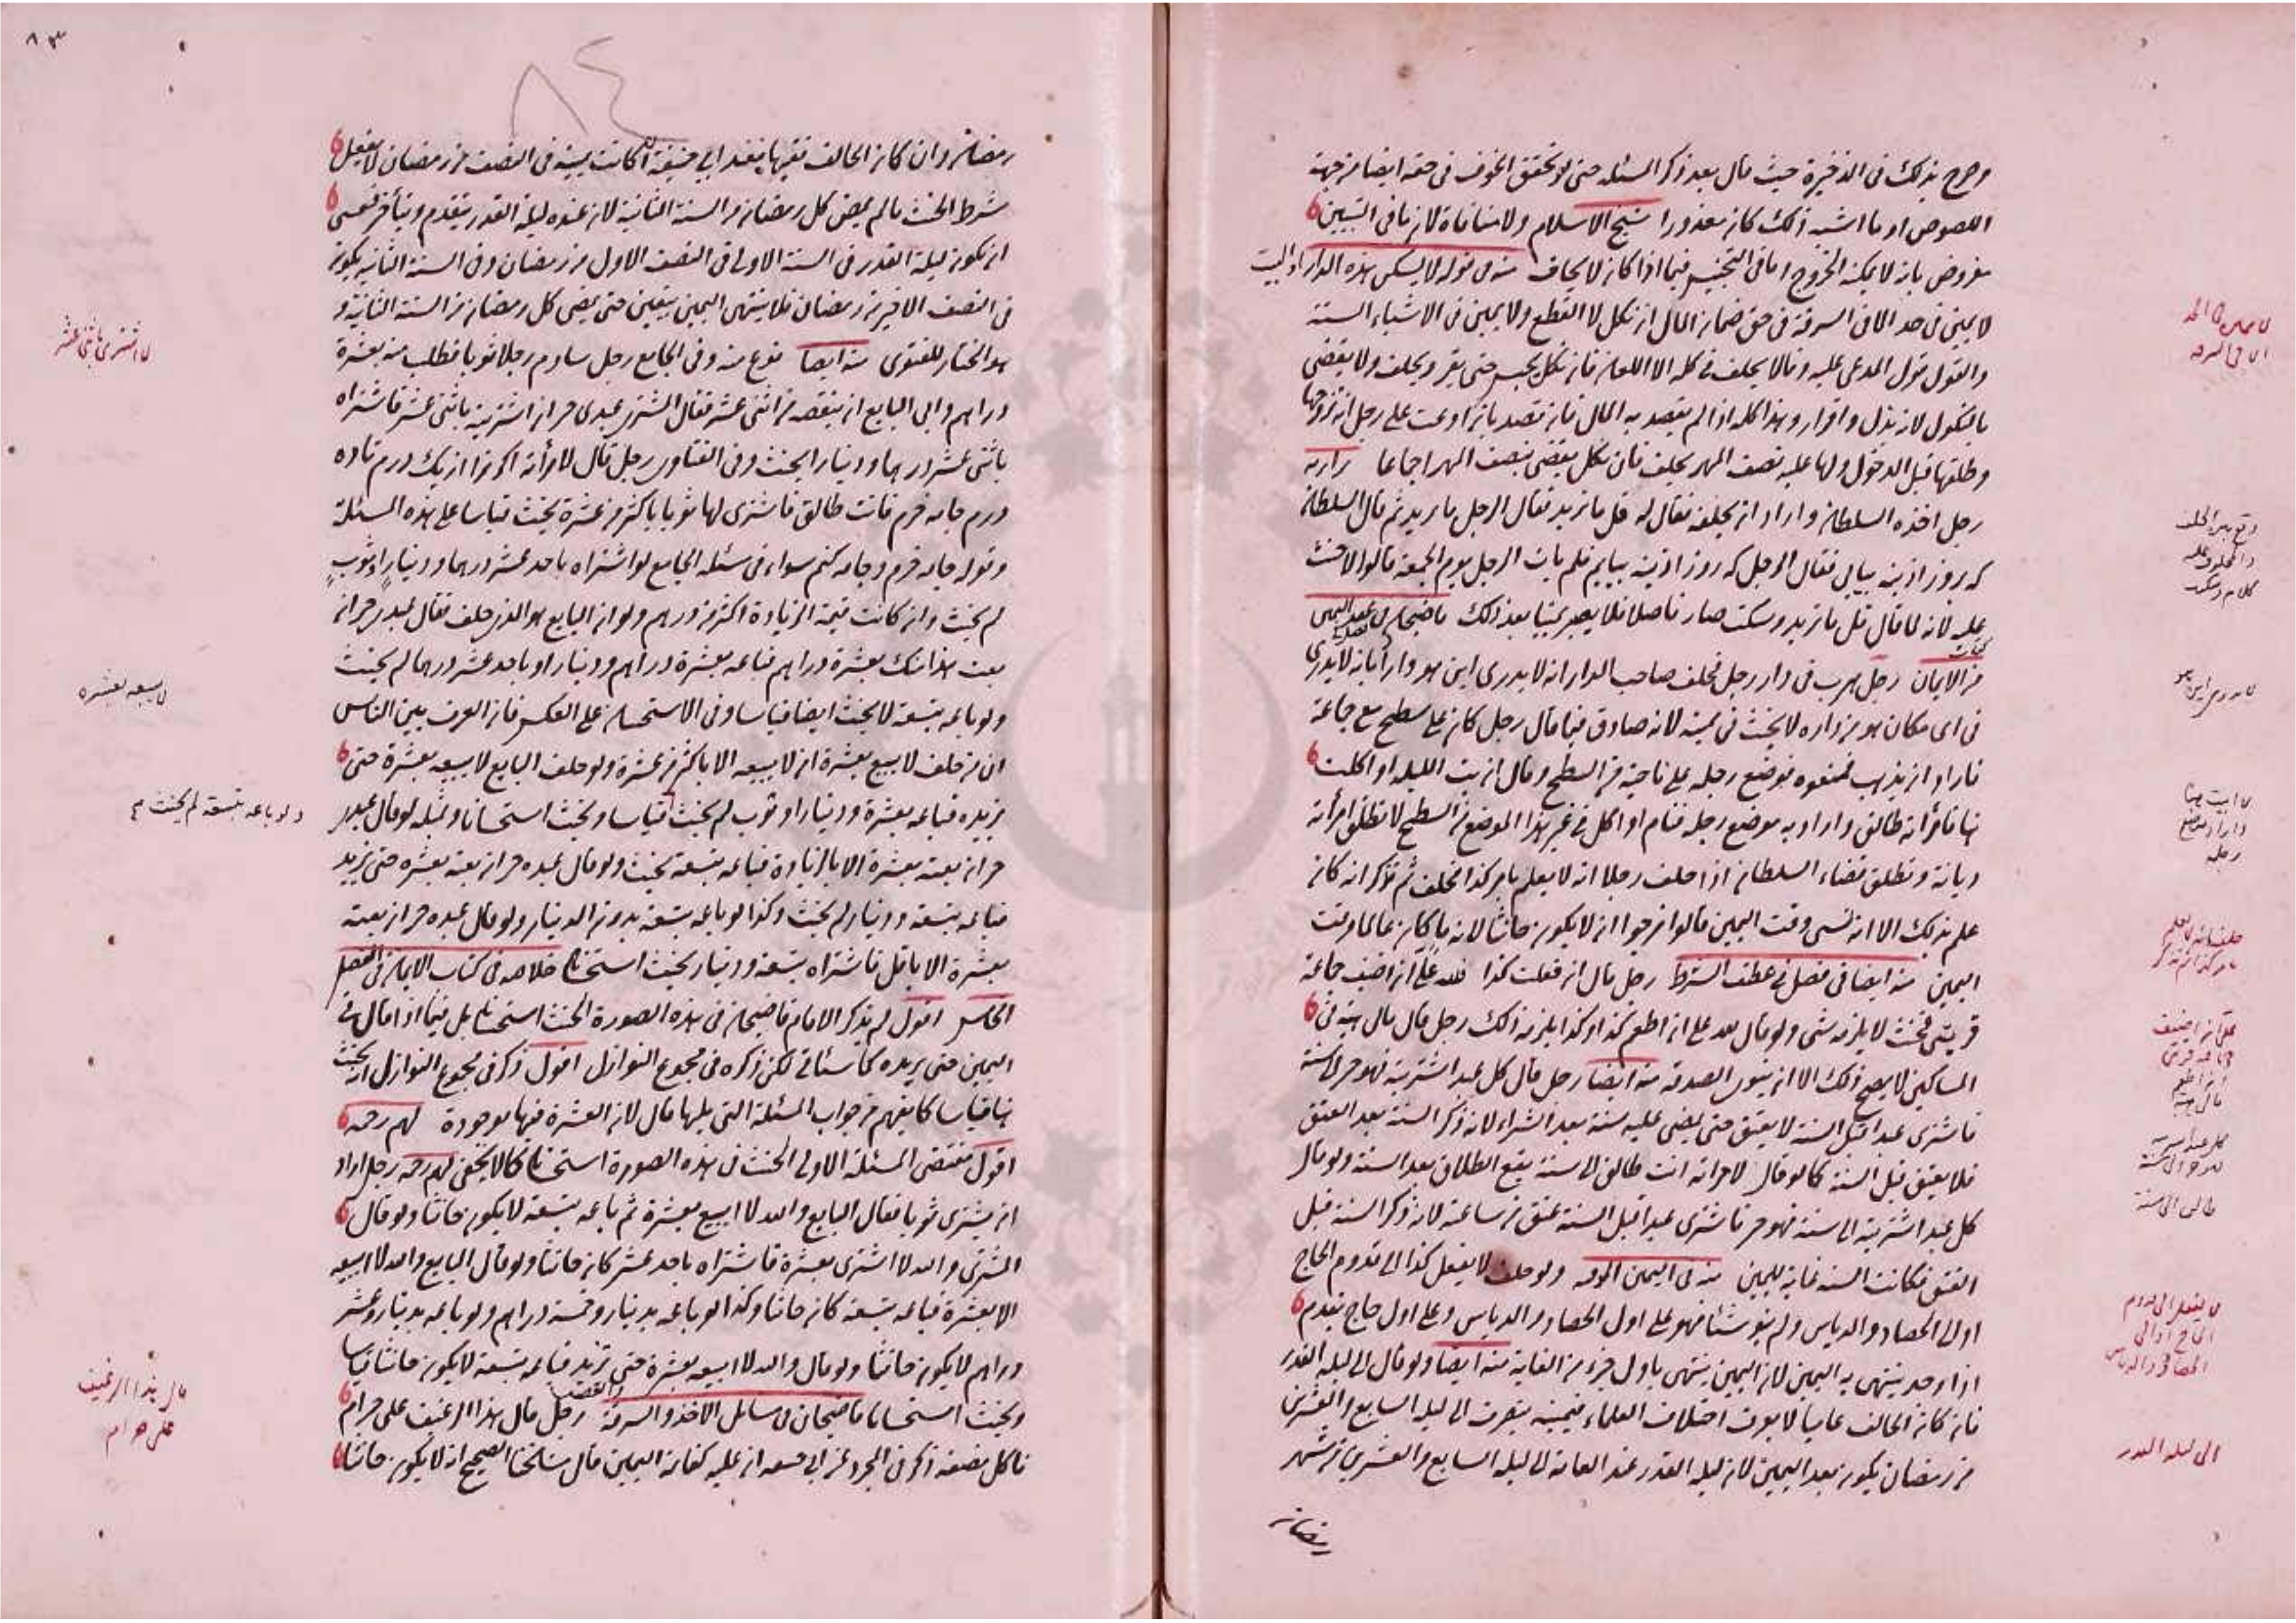 وصرح بذلك فى الذخيرة حيث قال بعد ذكر المسئلة حتى لو تحقق الخوف فى حقه ايضا من جهة
اللصوص او ما اشبه ذلك كان معذورا شيخ الاسلام ولا منافاة لان ما فى التبيين
مفروض بانه لا يمكنه الخروج وما فى التجنيس فيما اذا كان لا يخاف منه فى قوله لا يسكن هذه الدار او البيت
لا يمين فى حد الا فى السرقة فى حق ضمان المال ان نكل لا القطع ولا يمين فى الاشياء الستة
والقول قول المدعى عليه وقالا يحلف فى كله الا اللعان فان نكل يحبس حتى يقر ويحلف ولا يقضى
بالنكول لانه بذل واقرار وهذا كله اذا لم يقصد به المال فان قصد بان ادعت على رجل انه تزوجها
وطلقها قبل الدخول ولها عليه نصف المهر يحلف فان نكل يقضى بنصف المهر اجماعا
رجل اخذه السلطان واراد ان يحلفه فقال له قل ما تريد فقال الرجل ما تريد ثم قال السلطان
كه روز اذينه بيايى فقال الرجل كه روز اذينه بيايم فلم يات الرجل يوم الجمعة قالوا لا حنث
عليه لانه لما قال قل ما تريد وسكت صار فاصلا فلا يصير يمينا بعد ذلك قاضيخان فى عقد اليمين
من الايمان رجل هرب فى دار رجل فحلف صاحب الدار انه لا يدرى اين هو واراد بانه لا يدرى
فى اى مكان هو من داره لا يحنث فى يمينه لانه صادق فيما قال رجل كان على سطح مع جماعة
فاراد ان يذهب فمنعوه فوضع رجله على ناحية من السطح وقال ان بت الليلة او اكلت
هنا فامرأته طالق واراد به موضع رجله فنام او اكل فى غير هذا الموضع من السطح لا تطلق امرأته
ديانة وتطلق قضاء السلطان اذا حلف رجلا انه لا يعلم بامر كذا فحلف ثم تذكر انه كان
علم بذلك الا انه نسى وقت اليمين قالوا نرجوا ان لا يكون حانثا لانه ما كان عالما وقت
اليمين منه ايضا فى فصل فى عطف الشرط رجل قال ان فعلت كذا فلله على ان اضيف جماعة
قريتى فحنث لا يلزمه شئ ولو قال لله على ان اطعم كذا وكذا يلزمه ذلك رجل قال مالى هبة فى
المساكين لا يصح ذلك الا ان ينوى الصدقة منه ايضا رجل قال كل عبد اشتريته فهو حر الى سنة
فاشترى عبدا قبل السنة لا يعتق حتى يمضى عليه سنة بعد الشراء لانه ذكر السنة بعد العتق
فلا يعتق قبل السنة كما لو قال لامرأته انت طالق الى سنة يقع الطلاق بعد السنة ولو قال
كل عبد اشتريته الى سنة فهو حر فاشترى عبدا قبل السنة عتق من ساعته لانه ذكر السنة قبل
العتق فكانت السنة غاية لليمين منه فى اليمين الموقتة ولو حلف لا يفعل كذا الى قدوم الحاج
او الى الحصاد والدياس ولم ينو شيئا فهو على اول الحصاد والدياس وعلى اول حاج يقدم
اذا وجد ينتهى به اليمين لان اليمين ينتهى باول جزء من الغاية منه ايضا ولو قال الى ليلة القدر
فان كان الحالف عاميا لا يعرف اختلاف العلماء فيمينه ينصرف الى ليلة السابع والعشرين
من رمضان يكون بعد اليمين لان ليلة القدر عند العامة الى ليلة السابع والعشرين من شهر
رمضان
لا يمين فى الحد
الا فى السرقة
كلام وسكت
لا يدرى اين هو
ان ابيت هنا
واراد موضع
رجله
حلف انه لا يعلم
بامر كذا ثم تذكر
على ان اضيف
جماعة قريتى
طالق الى سنة
لا يفعل الى قدوم
الحاج او الى
الحصاد والدياس
الى ليلة القدر
٨٣
٨٤
رمضان وان كان الحالف فقيها فعند ابى حنيفة ان كانت يمينه فى النصف من رمضان لا يفعل
شرط الحنث ما لم يمض كل رمضان من السنة الثانية لان عنده ليلة القدر يتقدم ويتأخر فعسى
ان تكون ليلة القدر فى السنة الاولى فى النصف الاول من رمضان وفى السنة الثانية يكون
فى النصف الاخير من رمضان فلا ينتهى اليمين بيقين حتى يمضى كل رمضان من السنة الثانية و
هو المختار للفتوى منه ايضا نوع منه وفى الجامع رجل ساوم رجلا ثوبا فطلب منه بعشرة
دراهم وابى البايع ان ينقصه من اثنى عشر فقال المشترى عبدى حر ان اشتريته باثنى عشر فاشتراه
باثنى عشر درهما ودينارا يحنث وفى الفتاوى رجل قال لامرأته اكر ترا از يك درم تا ده
درم جامه خرم فانت طالق فاشترى لها ثوبا باكثر من عشرة يحنث قياسا على هذه المسئلة
وقوله جامه خرم وجامه كنم سواء فى مسئلة الجامع لو اشتراه باحد عشر درهما ودينار او ثوب
لم يحنث وان كانت قيمة الزيادة اكثر من درهم ولو ان البايع هو الذى حلف فقال عبدى حر ان
بعت هذا منك بعشرة دراهم فباعه بعشرة دراهم ودينار او باحد عشر درهما لم يحنث
ولو باعه بتسعة لا يحنث ايضا قياسا وفى الاستحسان على العكس فان العرف بين الناس
ان من حلف لا يبيع بعشرة ان لا يبيعه الا باكثر من عشرة ولو حلف البايع لا يبيعه بعشرة حتى
يزيده فباعه بعشرة ودينار او ثوب لم يحنث قياسا ويحنث استحسانا ومثله لو قال عبدى
حر ان بعته بعشرة الا بالزيادة فباعه بتسعة يحنث ولو قال عبده حر ان بعته بعشرة حتى يزيد
فباعه بتسعة ودينار لم يحنث وكذا لو باعه بتسعة بدون الدينار ولو قال عبده حر ان بعته
بعشرة الا باقل فاشتراه بتسعة ودينار يحنث استحسانا خلاصه فى كتاب الايمان فى الفصل
الخامس اقول لم يذكر الامام قاضيخان فى هذه الصورة الحنث استحسانا بل فيما اذا قال فى
اليمين حتى يزيده كما سيأتى لكن ذكره فى مجموع النوازل اقول ذكر فى مجموع النوازل انه يحنث
هنا قياسا كما يفهم من جواب المسئلة التى يليها قال لان العشرة فيها موجودة
اقول مقتضى المسئلة الاولى الحنث فى هذه الصورة استحسانا كما لا يخفى رجل اراد
ان يشترى ثوبا فقال البايع والله لا ابيع بعشرة ثم باعه بتسعة لا يكون حانثا ولو قال
المشترى والله لا اشترى بعشرة فاشتراه باحد عشر كان حانثا ولو قال البايع والله لا ابيعه
الا بعشرة فباعه بتسعة كان حانثا وكذا لو باعه بدينار وخمسة دراهم ولو باعه بدينار وعشر
دراهم لا يكون حانثا ولو قال والله لا ابيعه بعشرة حتى تزيد فباعه بتسعة لا يكون حانثا قياسا
ويحنث استحسانا قاضيخان فى مسائل الاخذ والسرقة والغصب رجل قال هذا الرغيف على حرام
فاكل بعضه ذكر فى المجرد عن ابى حنيفة ان عليه كفارة اليمين قال مشايخنا الصحيح انه لا يكون حانثا
لا اشترى باثنى عشر
لا يبيعه بعشره
ولو باعه بتسعة لم يحنث
قال هذا الرغيف
على حرام